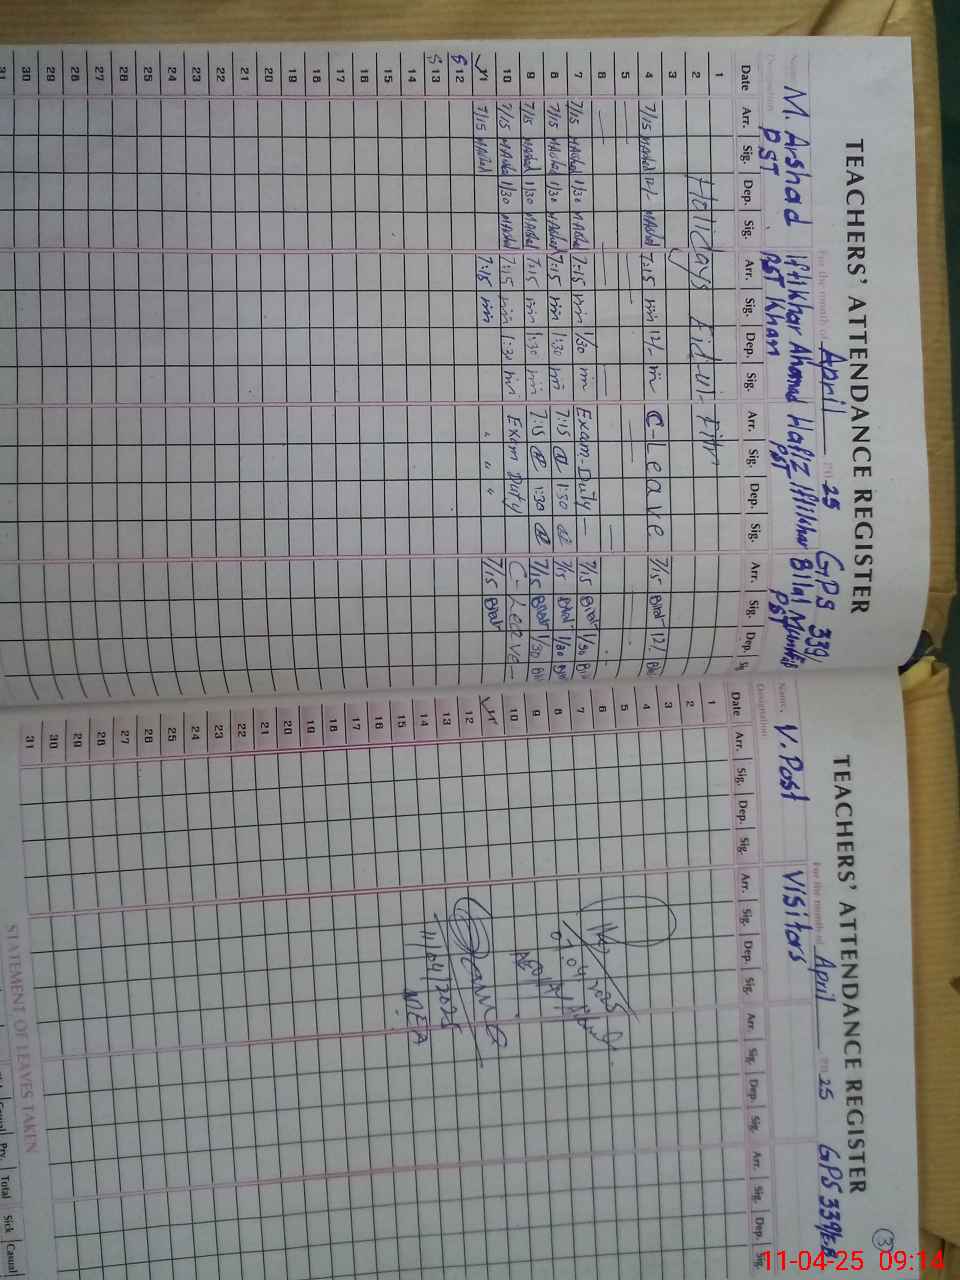 TEACHERS' ATTENDANCE REGISTER
For the month of April 20 25 GPS 339/
Name, M. Arshad Iftikhar Ahmad Khan Hafiz Iftikhar Bilal
Designation PST PST PST PST
Date Arr. Sig. Dep. Sig. Arr. Sig. Dep. Sig. Arr. Sig. Dep. Sig. Arr. Sig. Dep.
1
2 Holidays Eid-ul-Fitr
3
4 7/15 MArshad 12/- MArshad 7:15 12/- C-Leave 7/15 Bilal 12/
5
6
7 7/15 MArshad 1/30 MArshad 7:15 1/30 Exam-Duty 7/15 Bilal 1/30
8 7/15 MArshad 1/30 MArshad 7:15 1:30 7:15 1:30 7/15 Bilal 1/30
9 7/15 MArshad 1/30 MArshad 7:15 1:30 7:15 1:30 7/15 Bilal 1/30
10 7/15 MArshad 1/30 MArshad 7:15 1:30 Exam Duty C-Leave
11 7/15 MArshad 7:15 " " " 7/15 Bilal
S 12
S 13
14
15
16
17
18
19
20
21
22
23
24
25
26
27
28
29
30
31
TEACHERS' ATTENDANCE REGISTER
3
For the month of April 20 25 GPS 339/
Name, V. Post Visitors
Designation
Date Arr. Sig. Dep. Sig. Arr. Sig. Dep. Sig. Arr. Sig. Dep. Sig. Arr. Sig. Dep. Sig.
1
2
3
4
5
6
7
8
07.04.2025
9
10
11
12
13
11/04/2025
14
MEA
15
16
17
18
19
20
21
22
23
24
25
26
27
28
29
30
31
STATEMENT OF LEAVES TAKEN
Casual Prv. Total Sick Casual
11-04-25 09:14